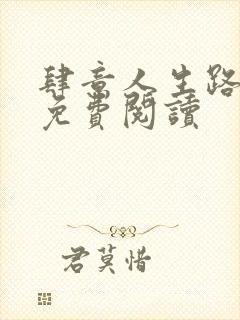 肆意人生路
免費閱讀
君莫惜